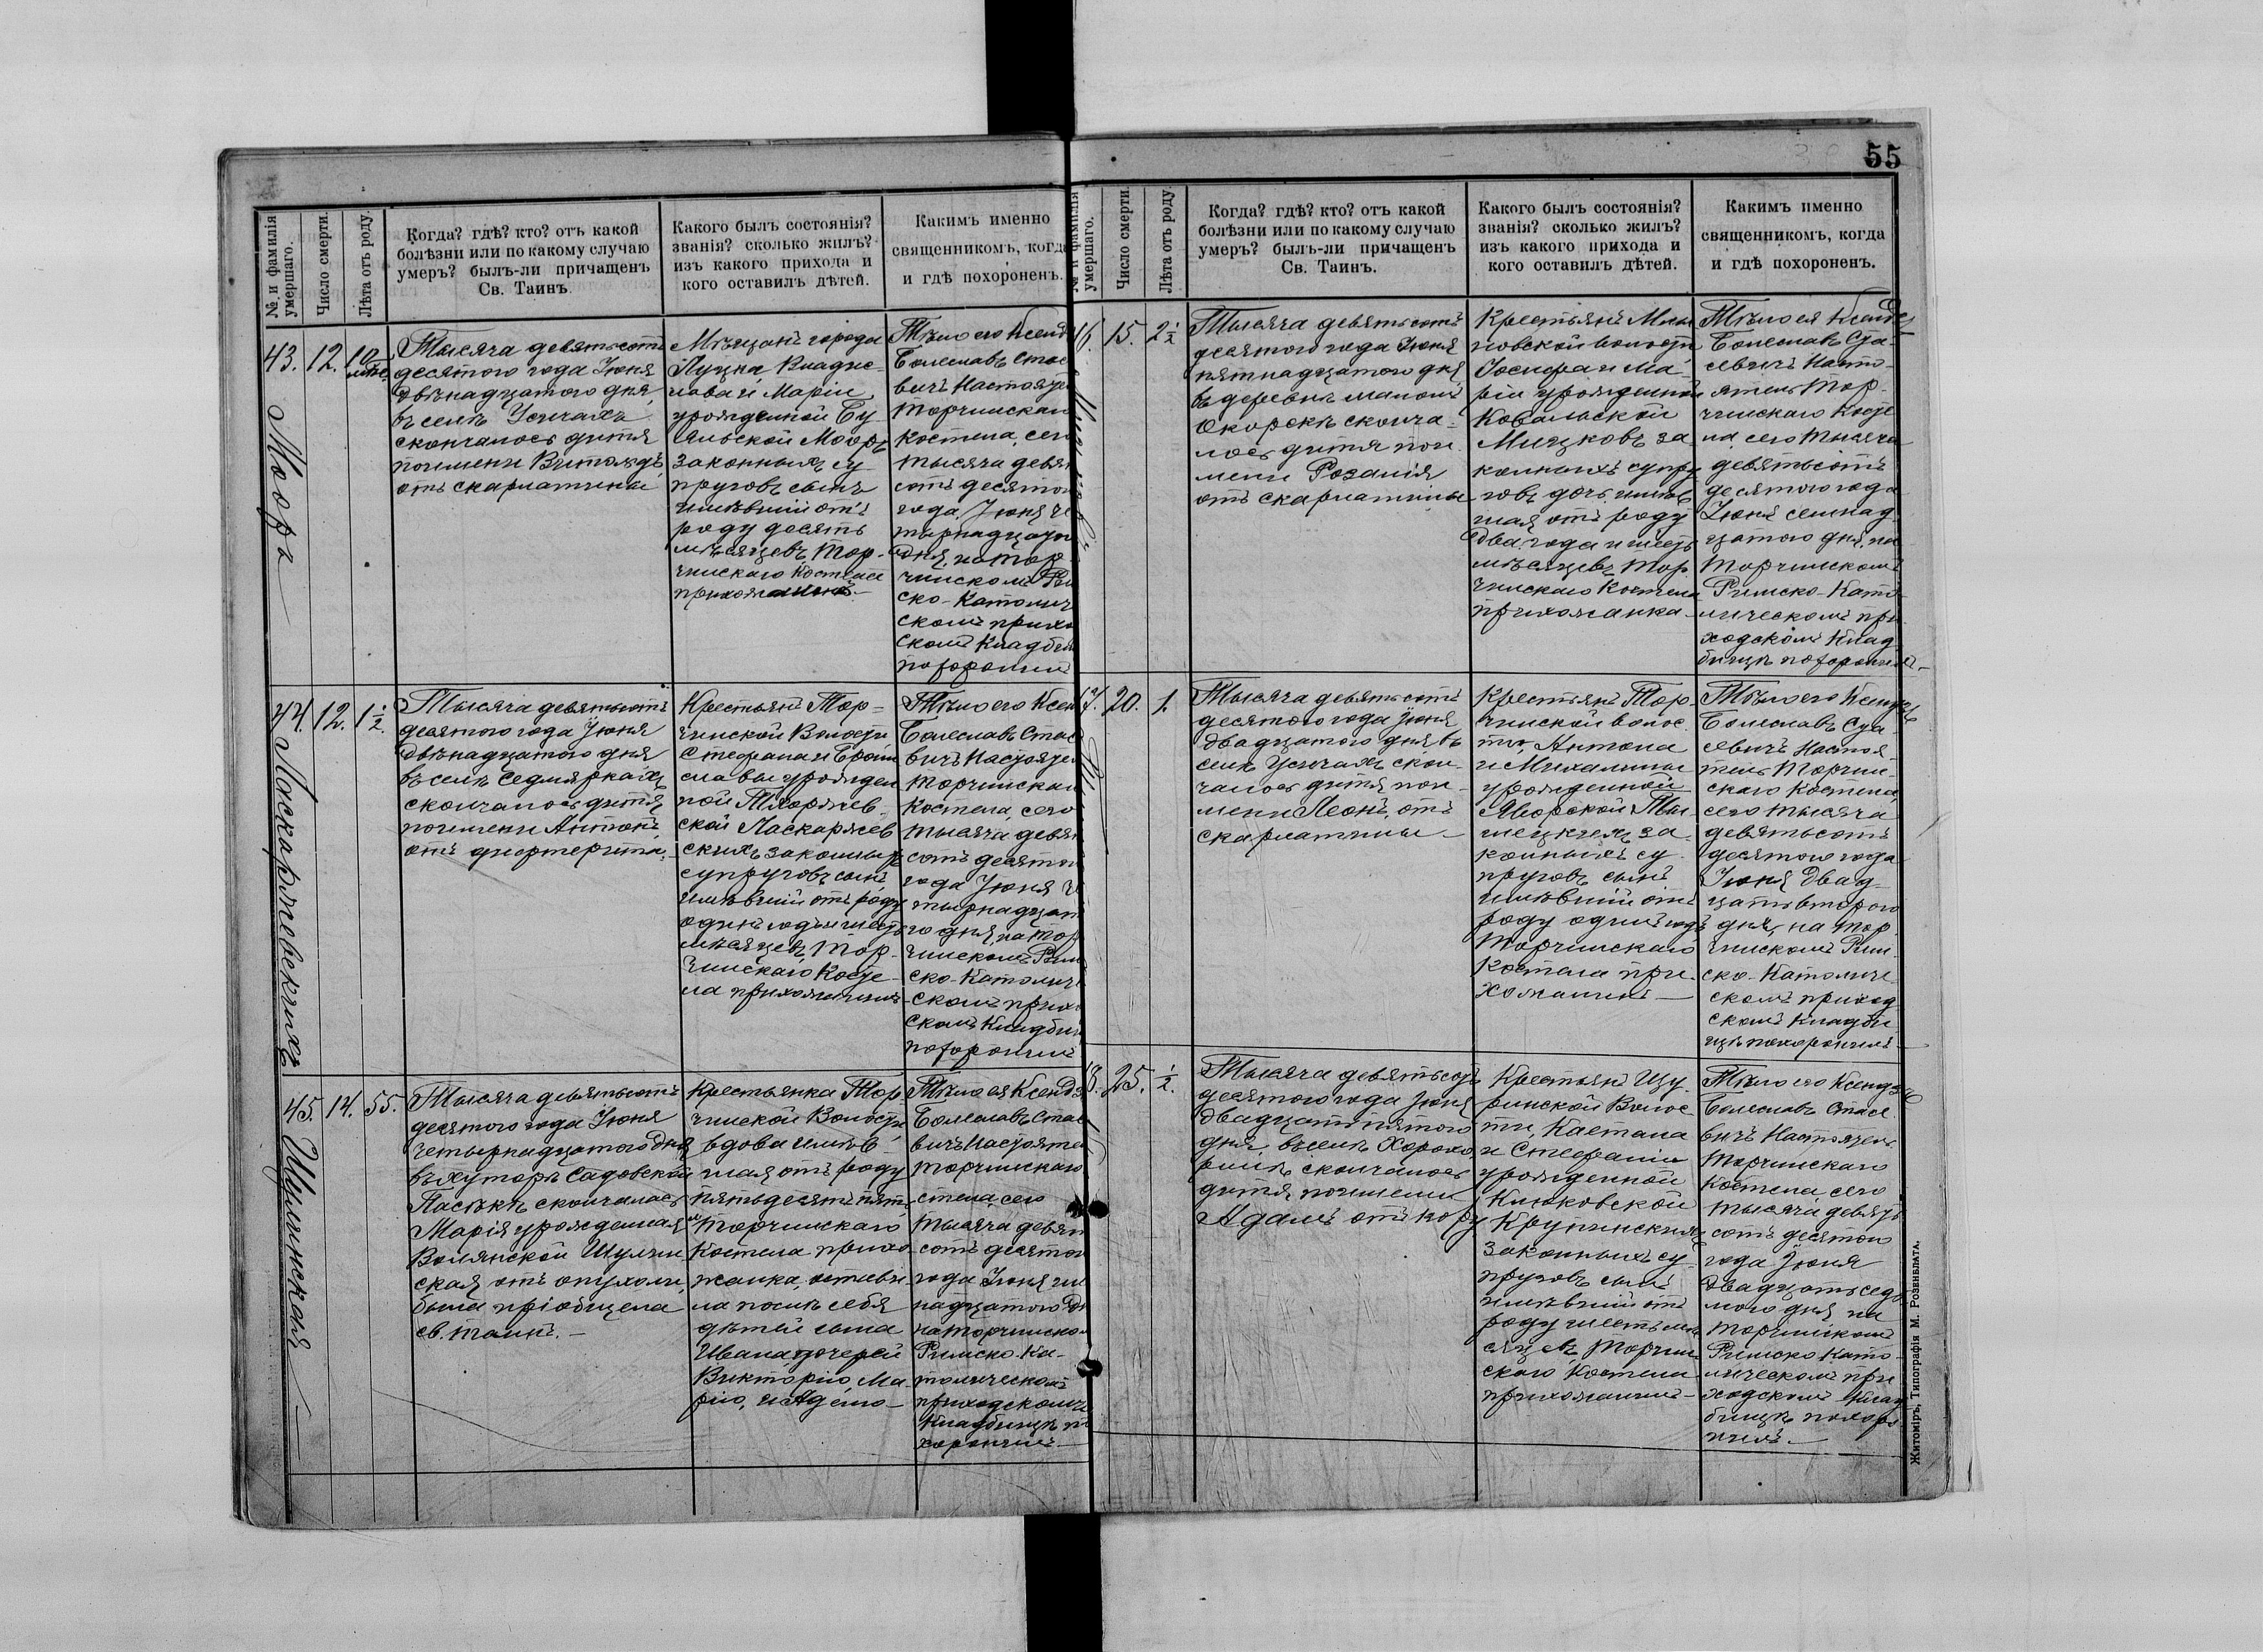 55
№ и фамилія умершаго.
Число смерти.
Лѣта отъ роду.
Когда? гдѣ? кто? отъ какой
болѣзни или по какому случаю
умеръ? былъ-ли причащенъ
Св. Таинъ.
Какого былъ состоянія?
званія? сколько жилъ?
изъ какого прихода и
кого оставилъ дѣтей.
Какимъ именно
священникомъ, когда
и гдѣ похороненъ.
43.
Моор
12.
10
Тысяча девятьсотъ
десятого года Юоня
двѣнадцатого дня,
въ селѣ Усичахъ
скончалось дитя
поимени Витольдъ
отъ скарлатины
Мѣщанъ города
Луцка Владис-
лава и Маріи
урожденной Бу
яльской Мооръ
законныхъ су
пруговъ сынъ
имѣвшій отъ
роду десять
мѣсяцевъ, Тор-
чинскаго Костела
прихожанинъ.
Тѣло его Ксенд
Болеславъ Стас
вичъ Настояте
Торчинскаг
Костела, сего
тысяча девят
сотъ десятог
года Юоня че
тырнадцато
дня, на Тор
чинскомъ Ри
ско-Католич
скомъ прихо
скомъ Кладби
похоронилъ
44.
Ласкаржевскихъ
12.
1 1/2.
Тысяча девятьсотъ
десятого года Юоня
двѣнадцатого дня
въ селѣ Седмяркахъ
скончалось дитя,
поимени Антонъ
отъ дифтерита.
Крестьянъ Тор-
чинской Волости
Стефана и Брони
славы урожден
ной Тхоржев-
ской Ласкаржев
скихъ законныхъ
супруговъ сынъ
имѣвшій отъ роду
одинъ годъ и шесть
мѣсяцевъ, Тор-
чинскаго Косте-
ла прихожанинъ
Тѣло его Ксен
Болеславъ Стас
вичъ Настояте
Торчинскаг
Костела, сего
тысяча девят
сотъ десятог
года Юоня че
тырнадцат
го дня, на Тор
чинскомъ Рим
ско-Католич
скомъ прихо
скомъ Кладби
похоронилъ
45.
Шулинская
14.
55.
Тысяча девятьсотъ
десятого года Юоня
четырнадцатого дня
въ хуторѣ Садовской
Пасѣкѣ скончалась
Марія урожденная
Волянской Шулин
ская отъ опухоли,
была пріобщена
св. таинъ.
Крестьянка Тор-
чинской Волости
вдова имѣв-
шая отъ роду
пятьдесятъ пять
Торчинскаго
Костела прихо
жанка, остави
ла послѣ себя
дѣтей сына
Ивана дочерей
Викторію, Ма-
рію, и Адель
Тѣло ея Ксендз
Болеславъ Стас
вичъ Настояте
Торчинскаго
стела, сего
тысяча девят
сотъ десятог
года Юоня ше
надцатого дн
на Торчинско
Римско-Ка-
толическомъ
приходскомъ
Кладбищѣ по
хоронилъ
№ и фамилія умершаго.
Число смерти.
Лѣта отъ роду.
Когда? гдѣ? кто? отъ какой
болѣзни или по какому случаю
умеръ? былъ-ли причащенъ
Св. Таинъ.
Какого былъ состоянія?
званія? сколько жилъ?
изъ какого прихода и
кого оставилъ дѣтей.
Какимъ именно
священникомъ, когда
и гдѣ похороненъ.
15.
2 1/2
Тысяча девятьсотъ
десятого года Юоня
пятнадцатого дня
въ деревнѣ малой
Окоркѣ сконча-
лось дитя пои
мени Розалія
отъ скарлатины
Крестьянъ
новской волости
Іосифа и Ма-
ріи урожденной
Ковальской
Мицковъ за
конныхъ супру
говъ дочь имѣв
шая отъ роду
два года и шесть
мѣсяцевъ Тор
чинскаго Костела
прихожанка
Тѣло ея Ксендз
Болеславъ Ста-
севичъ Насто-
ятель Тор-
чинскаго Косте
ла, сего тысяча
девятьсотъ
десятого года
Юоня семнад
цатого дня, на
Торчинскомъ
Римско-Като-
лическомъ при
ходскомъ Клад
бищѣ похоронилъ
20.
1.
Тысяча девятьсотъ
десятого года Юоня
двадцатого дня въ
селѣ Усичахъ скон
чалось дитя, пои-
мени Леонъ, отъ
скарлатины
Крестьянъ Тор
чинской волос
ти Антона
и Михалины
урожденной
Яворской
за
конныхъ су
пруговъ сынъ
имѣвшій отъ
роду одинъ годъ
Торчинскаго
Костела при
хожанинъ
Тѣло его Ксендзъ
Болеславъ Ста-
севичъ Настоя
тель Торчин-
скаго Костела,
сего тысяча
девятьсотъ
десятого года
Юоня двад-
цать второго
дня, на Тор-
чинскомъ Рим-
ско-Католиче-
скомъ приход
скомъ Кладби
щѣ похоронилъ
25.
1/2.
Тысяча девятьсотъ
десятого года Юоня
двадцать пятого
дня, въ селѣ Хорохо
ринѣ скончалось
дитя, поимени
Адамъ отъ кору
Крестьянъ Щу
ринской Волос
ти, Каетана
и Стефаніи
урожденной
Клюковской
Крупинскихъ
законныхъ су-
пруговъ сынъ
имѣвшій отъ
роду шесть мѣ
сяцевъ, Торчин
скаго Костела
прихожанинъ
Тѣло его Ксендзъ
Болеславъ Стасе
вичъ Настоятель
Торчинскаго
Костела, сего
тысяча девять
сотъ десятого
года Юоня
двадцать седь
мого дня на
Торчинскомъ
Римско-Като-
лическомъ при
ходскомъ Клад
бищѣ похоро
нилъ.
Житоміръ, Типографія М. Розенблата.